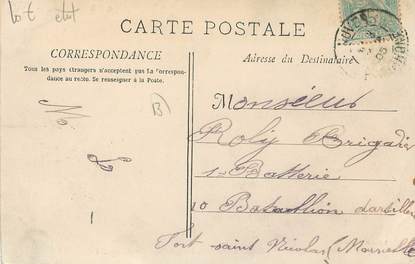 Lot etat
CARTE POSTALE
CORRESPONDANCE
Tous les pays étrangers n'acceptent pas la Correspon-
dance au recto. Se renseigner à la Poste.
Adresse du Destinataire
B)
Monsieur
Roly Brigadier
1e Batterie
10 Bataillion d'artiller
Fort saint Nicolas (Marseille
No
8
1